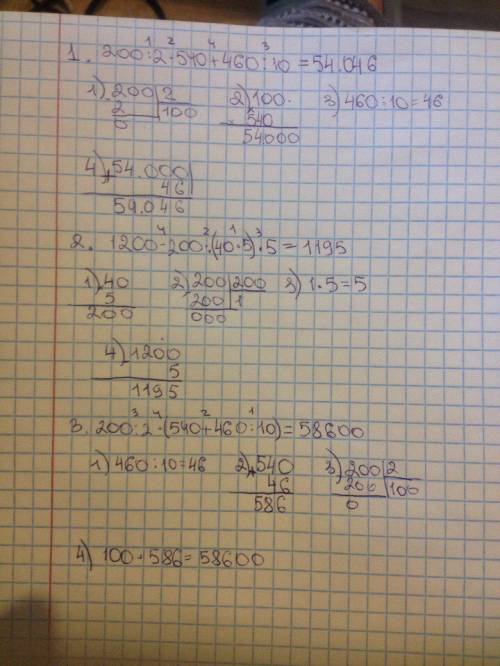 1. 200:2·540+460:10=54.046
1 2 4 3
1) 200 2 2) 100 3) 460:10=46
2 100 × 540
0 54.000
4) + 54.000
46
54.046
2. 1200-200:(40·5)·5=1195
4 2 1 3
1) 40 2) 200 200 3) 1·5=5
5 200 1
200 000
4) 1200
5
1195
3. 200:2·(540+460:10)=58600
3 4 2 1
1) 460:10=46 2) + 540 3) 200 2
46 200 100
586 0
4) 100·586=58600